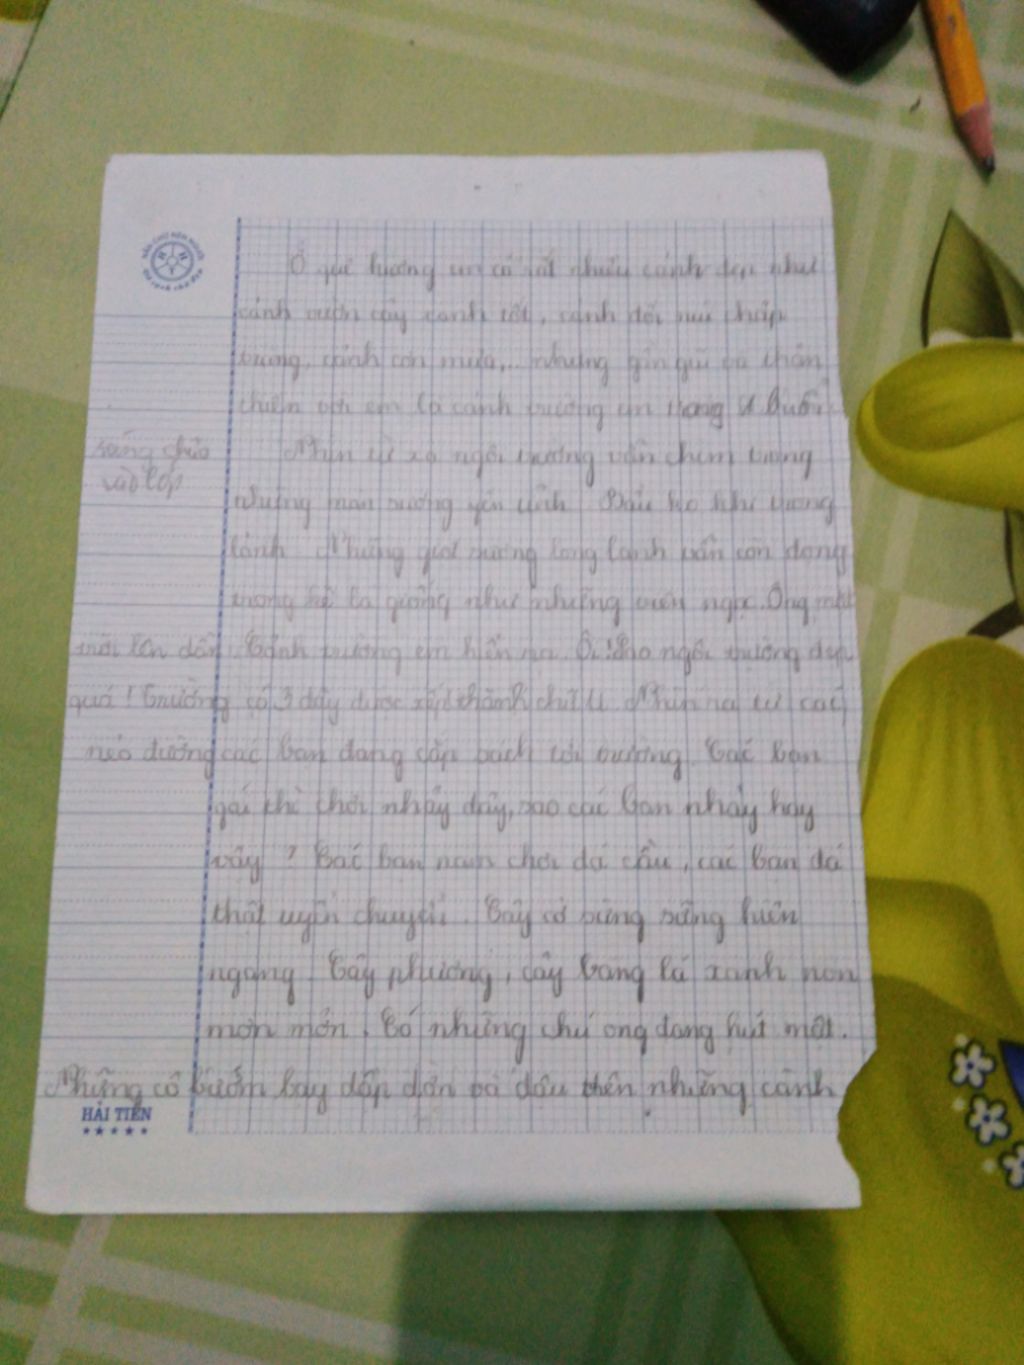 NÂN CHỮ NÂN NGƯỜI
Ở quê hương em có rất nhiều cảnh đẹp như
cảnh vườn cây xanh tốt, cảnh đồi núi chập
trùng, cảnh cơn mưa,... nhưng gần gũi và thân
thiên với em là cảnh trường em trong 1 buổi
sáng
vào lớp
Nhìn từ xa ngôi trường vẫn chìm trong
những màn sương yên tĩnh Bầu ko khí trong
lành Những giọt sương long lanh vẫn còn đọng
trong kẽ lá giống như những viên ngọc. Ông mặt
trời lên dần. Cảnh trường em hiển ra. Ôi! Sao ngôi trường đẹp
quá! Trường có 3 dãy được xếp thành chữ U Nhìn ra từ các
nẻo đường các bạn đang cắp sách tới trường Các bạn
gái thì chơi nhảy dây, sao các bạn nhảy hay
vậy? Các bạn nam chơi đá cầu, các bạn đá
thật uyển chuyển. Cây cờ sừng sững hiên
ngang Cây phượng, cây bàng lá xanh non
mơn mởn. Có những chú ong đang hút mật.
Những cô bướm bay dập dờn và đậu trên những cành
HẢI TIẾN